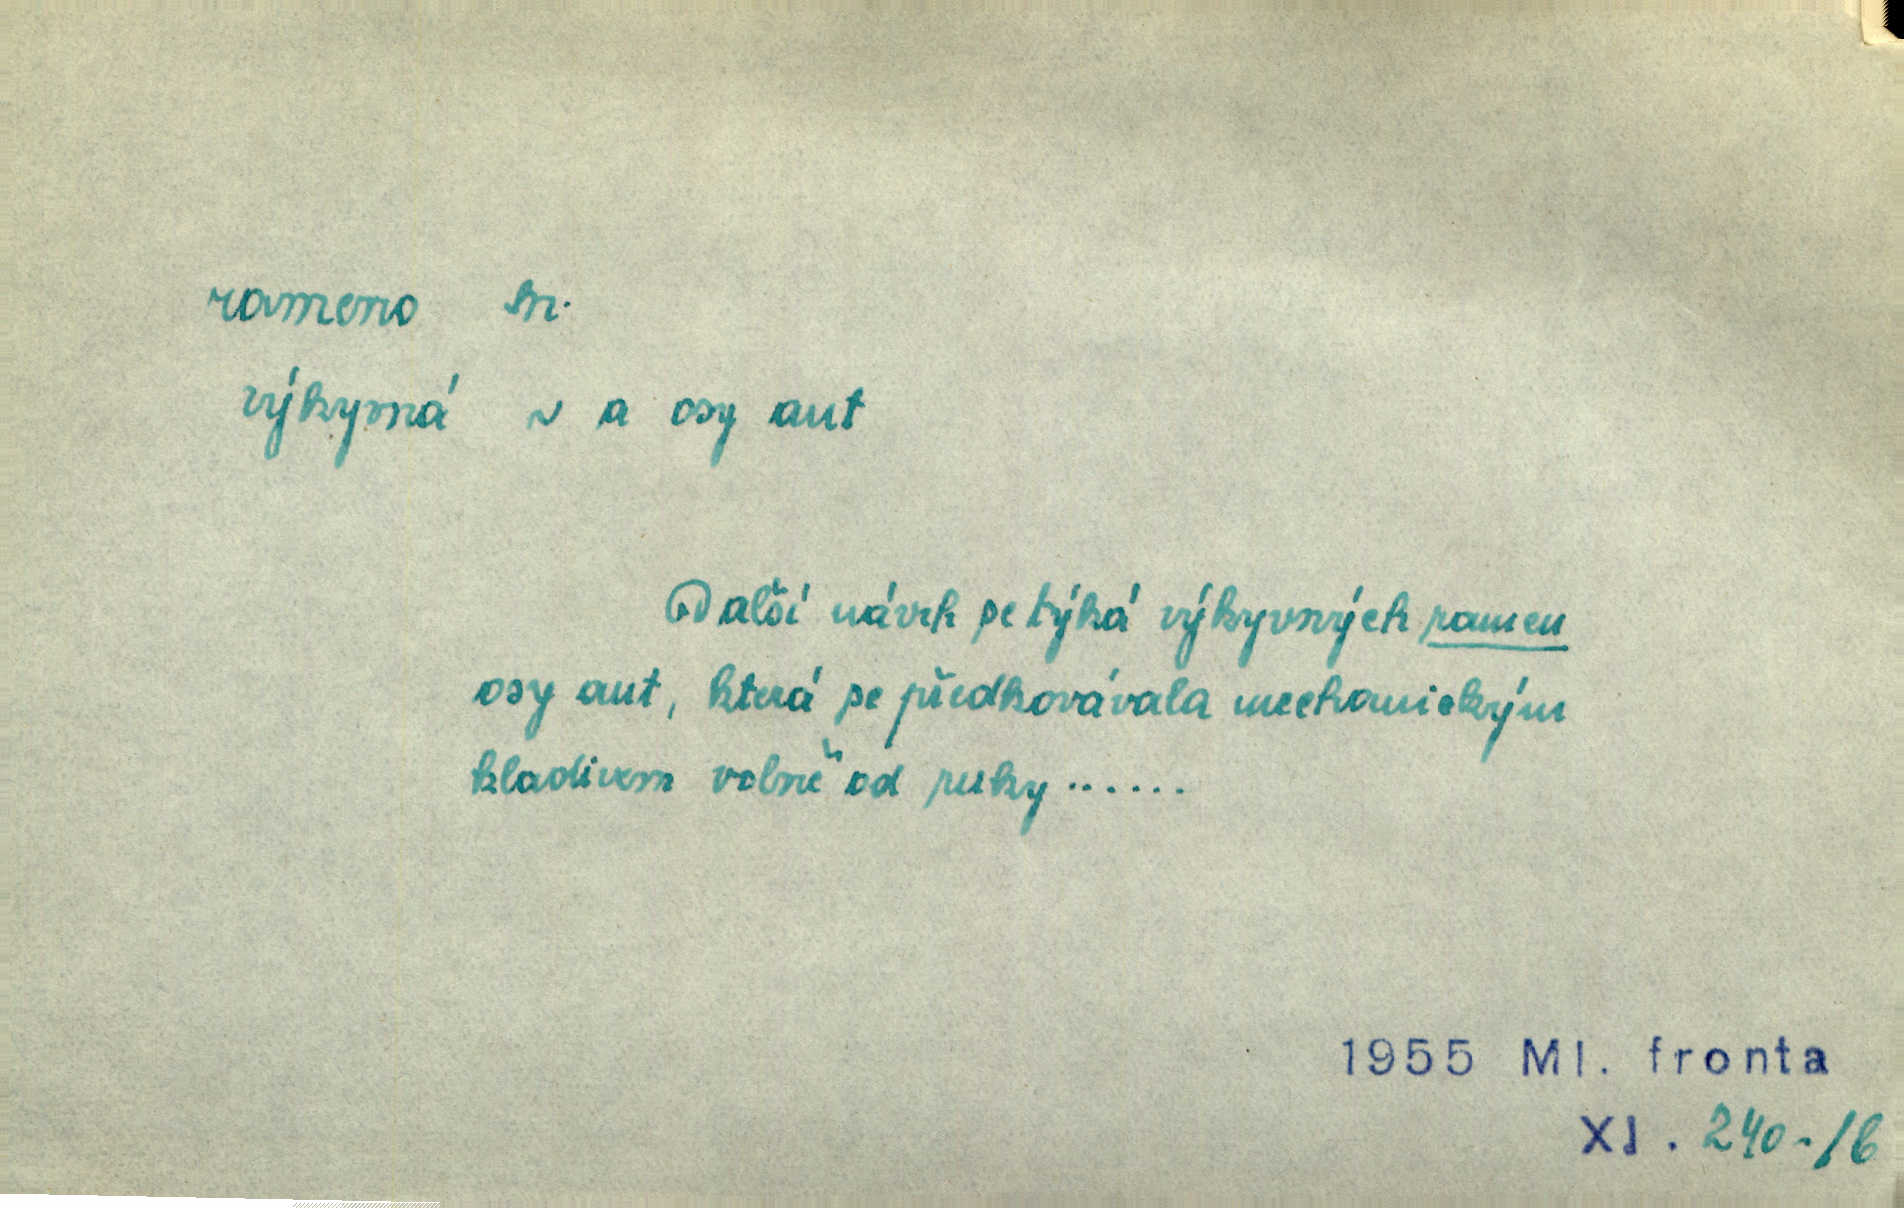 rameno tn.
výkyvná ~ a osy aut
Další návrh se týká výkyvných ramen
osy aut, která se předkovávala mechanickým
kladivem volně od ruky ......
1955 Ml. fronta
XI. 240-/6